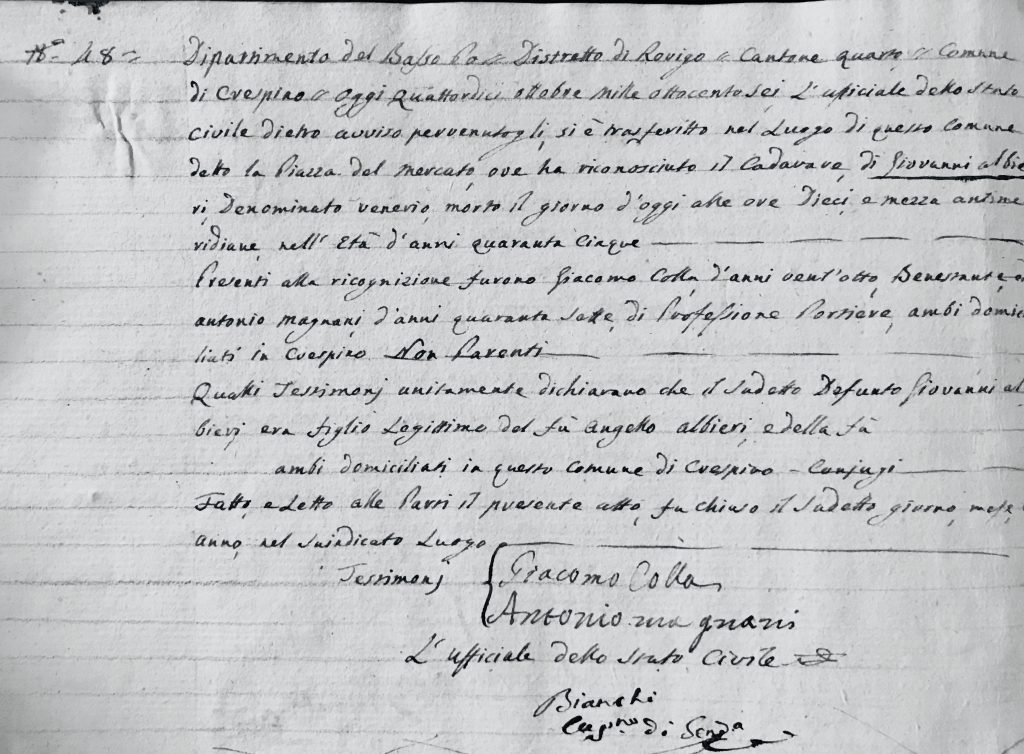 48=
Dipartimento del Basso Po = Distretto di Rovigo = Cantone quarto = Comune
di Crespino = Oggi Quattordici ottobre mille ottocento sei L'ufficiale dello Stato
civile dietro avviso pervenutogli, si è trasferitto nel Luogo di questo Comune
detto la Piazza del mercato, ove ha riconosciuto il Cadavave, di Giovanni albie
ri, Denominato venerio, morto il giorno d'oggi alle ore Dieci, e mezza antime
ridiane, nell' Età d'anni quaranta Cinque
Presenti alla ricognizione furono Giacomo Colla, d'anni vent'otto, Benestante, ed
antonio Magnani, d'anni quaranta sette, di Professione Portiere, ambi domici
liati in Crespino Non Parenti
Qualli Testimonj unitamente dichiarano che il sudetto Defunto Giovanni al
bieri, era figlio Legittimo del fù Angello albieri, e della fù
ambi domiciliati in questo Comune di Crespino - Conjugi
Fatto, e Letto alle Parti il presente atto, fu chiuso il sudetto, giorno, mese,
anno, nel suindicato Luogo
Testimonj { Giacomo Colla
Antonio magnani
L'ufficiale dello stato Civile
Bianchi
di